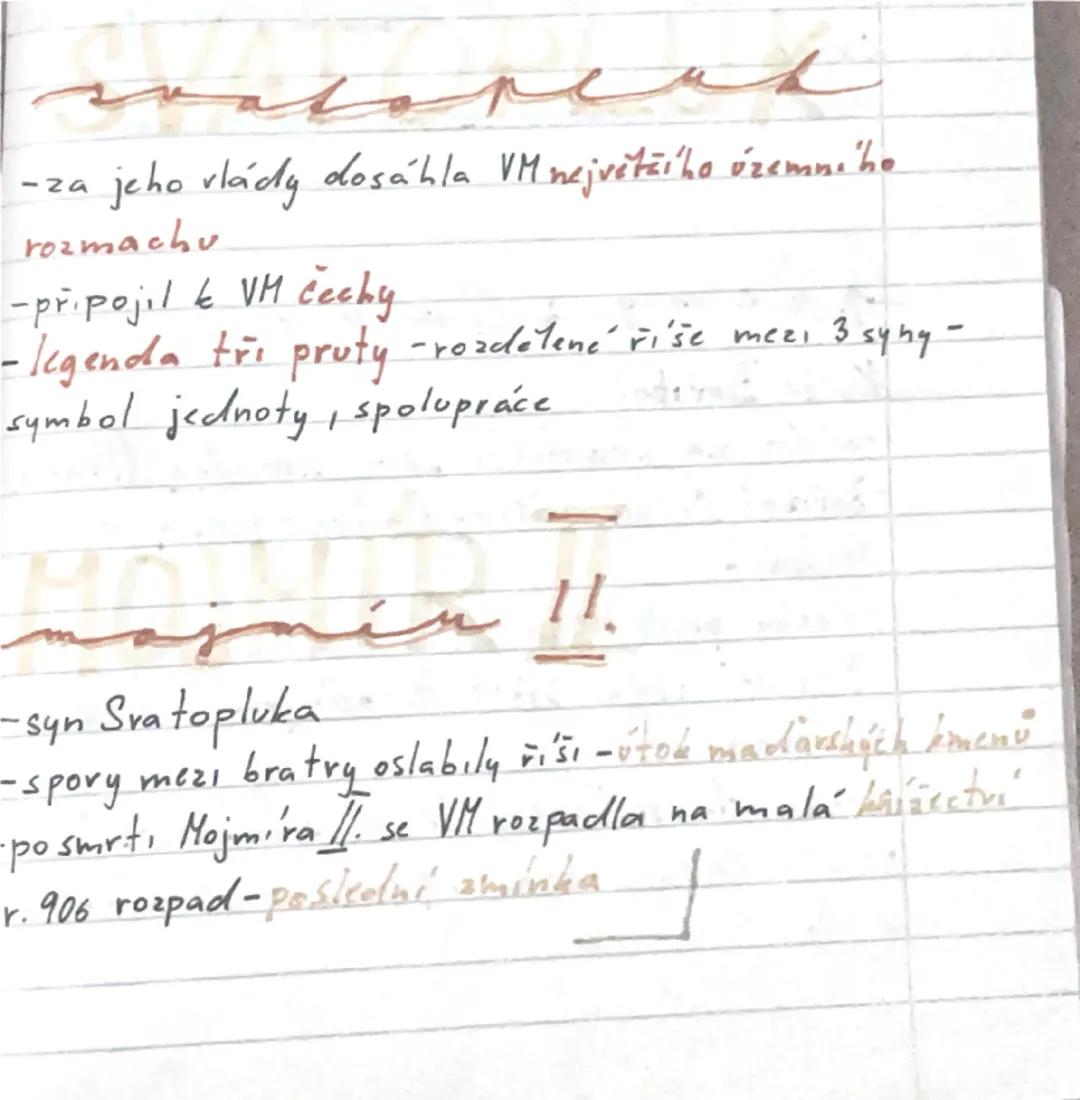 SVATOPLUK
svatopluk
-za jeho vlády dosáhla VM největšího územního
rozmachu
-připojil k VM čechy
-legenda tři pruty -rozdělené říše mezi 3 syny-
symbol jednoty, spolupráce
MOJMÍR II
mojmír II.
-syn Svatopluka
-spory mezi bratry oslabily říši -útok maďarských kmenů
-po smrti Mojmíra II. se VM rozpadla na malá knížectví
r. 906 rozpad-poslední zmínka